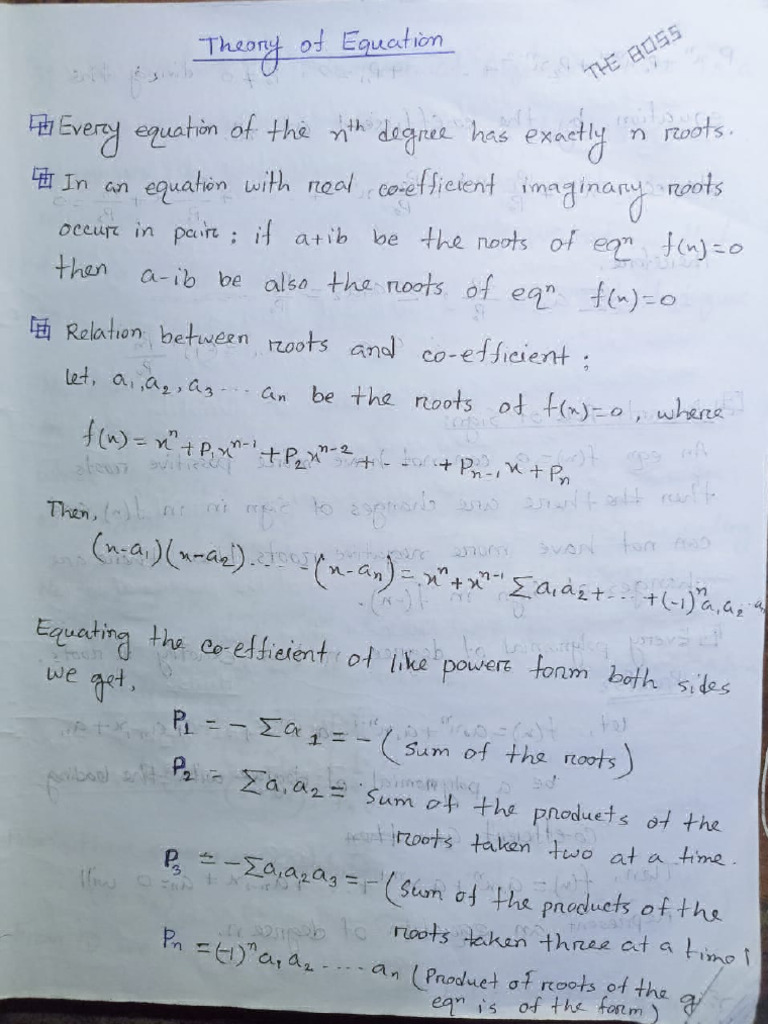 Theory of Equation
THE BOSS
Every equation of the nth degree has exactly n roots.
In an equation with real co-efficient imaginary roots
occur in pair; if a+ib be the roots of eqn f(x)=0
then a-ib be also the roots of eqn f(x)=0
Relation between roots and co-efficient;
let, a₁, a₂, a₃ ... aₙ be the roots of f(x)=0, where
f(x) = xⁿ + P₁xⁿ⁻¹ + P₂xⁿ⁻² + - - - + Pₙ₋₁x + Pₙ
Then,
(x-a₁)(x-a₂)... -(x-aₙ) = xⁿ + xⁿ⁻¹ Σa₁a₂ + ... + (-1)ⁿa₁a₂
Equating the co-efficient of like powers form both sides
we get,
P₁ = - Σa₁ = - (sum of the roots)
P₂ = Σa₁a₂ = sum of the products of the
roots taken two at a time.
P₃ = -Σa₁a₂a₃ = - (sum of the products of the
roots taken three at a time)
Pₙ = (-1)ⁿa₁a₂ ..... aₙ (Product of roots of the
eqn is of the form)